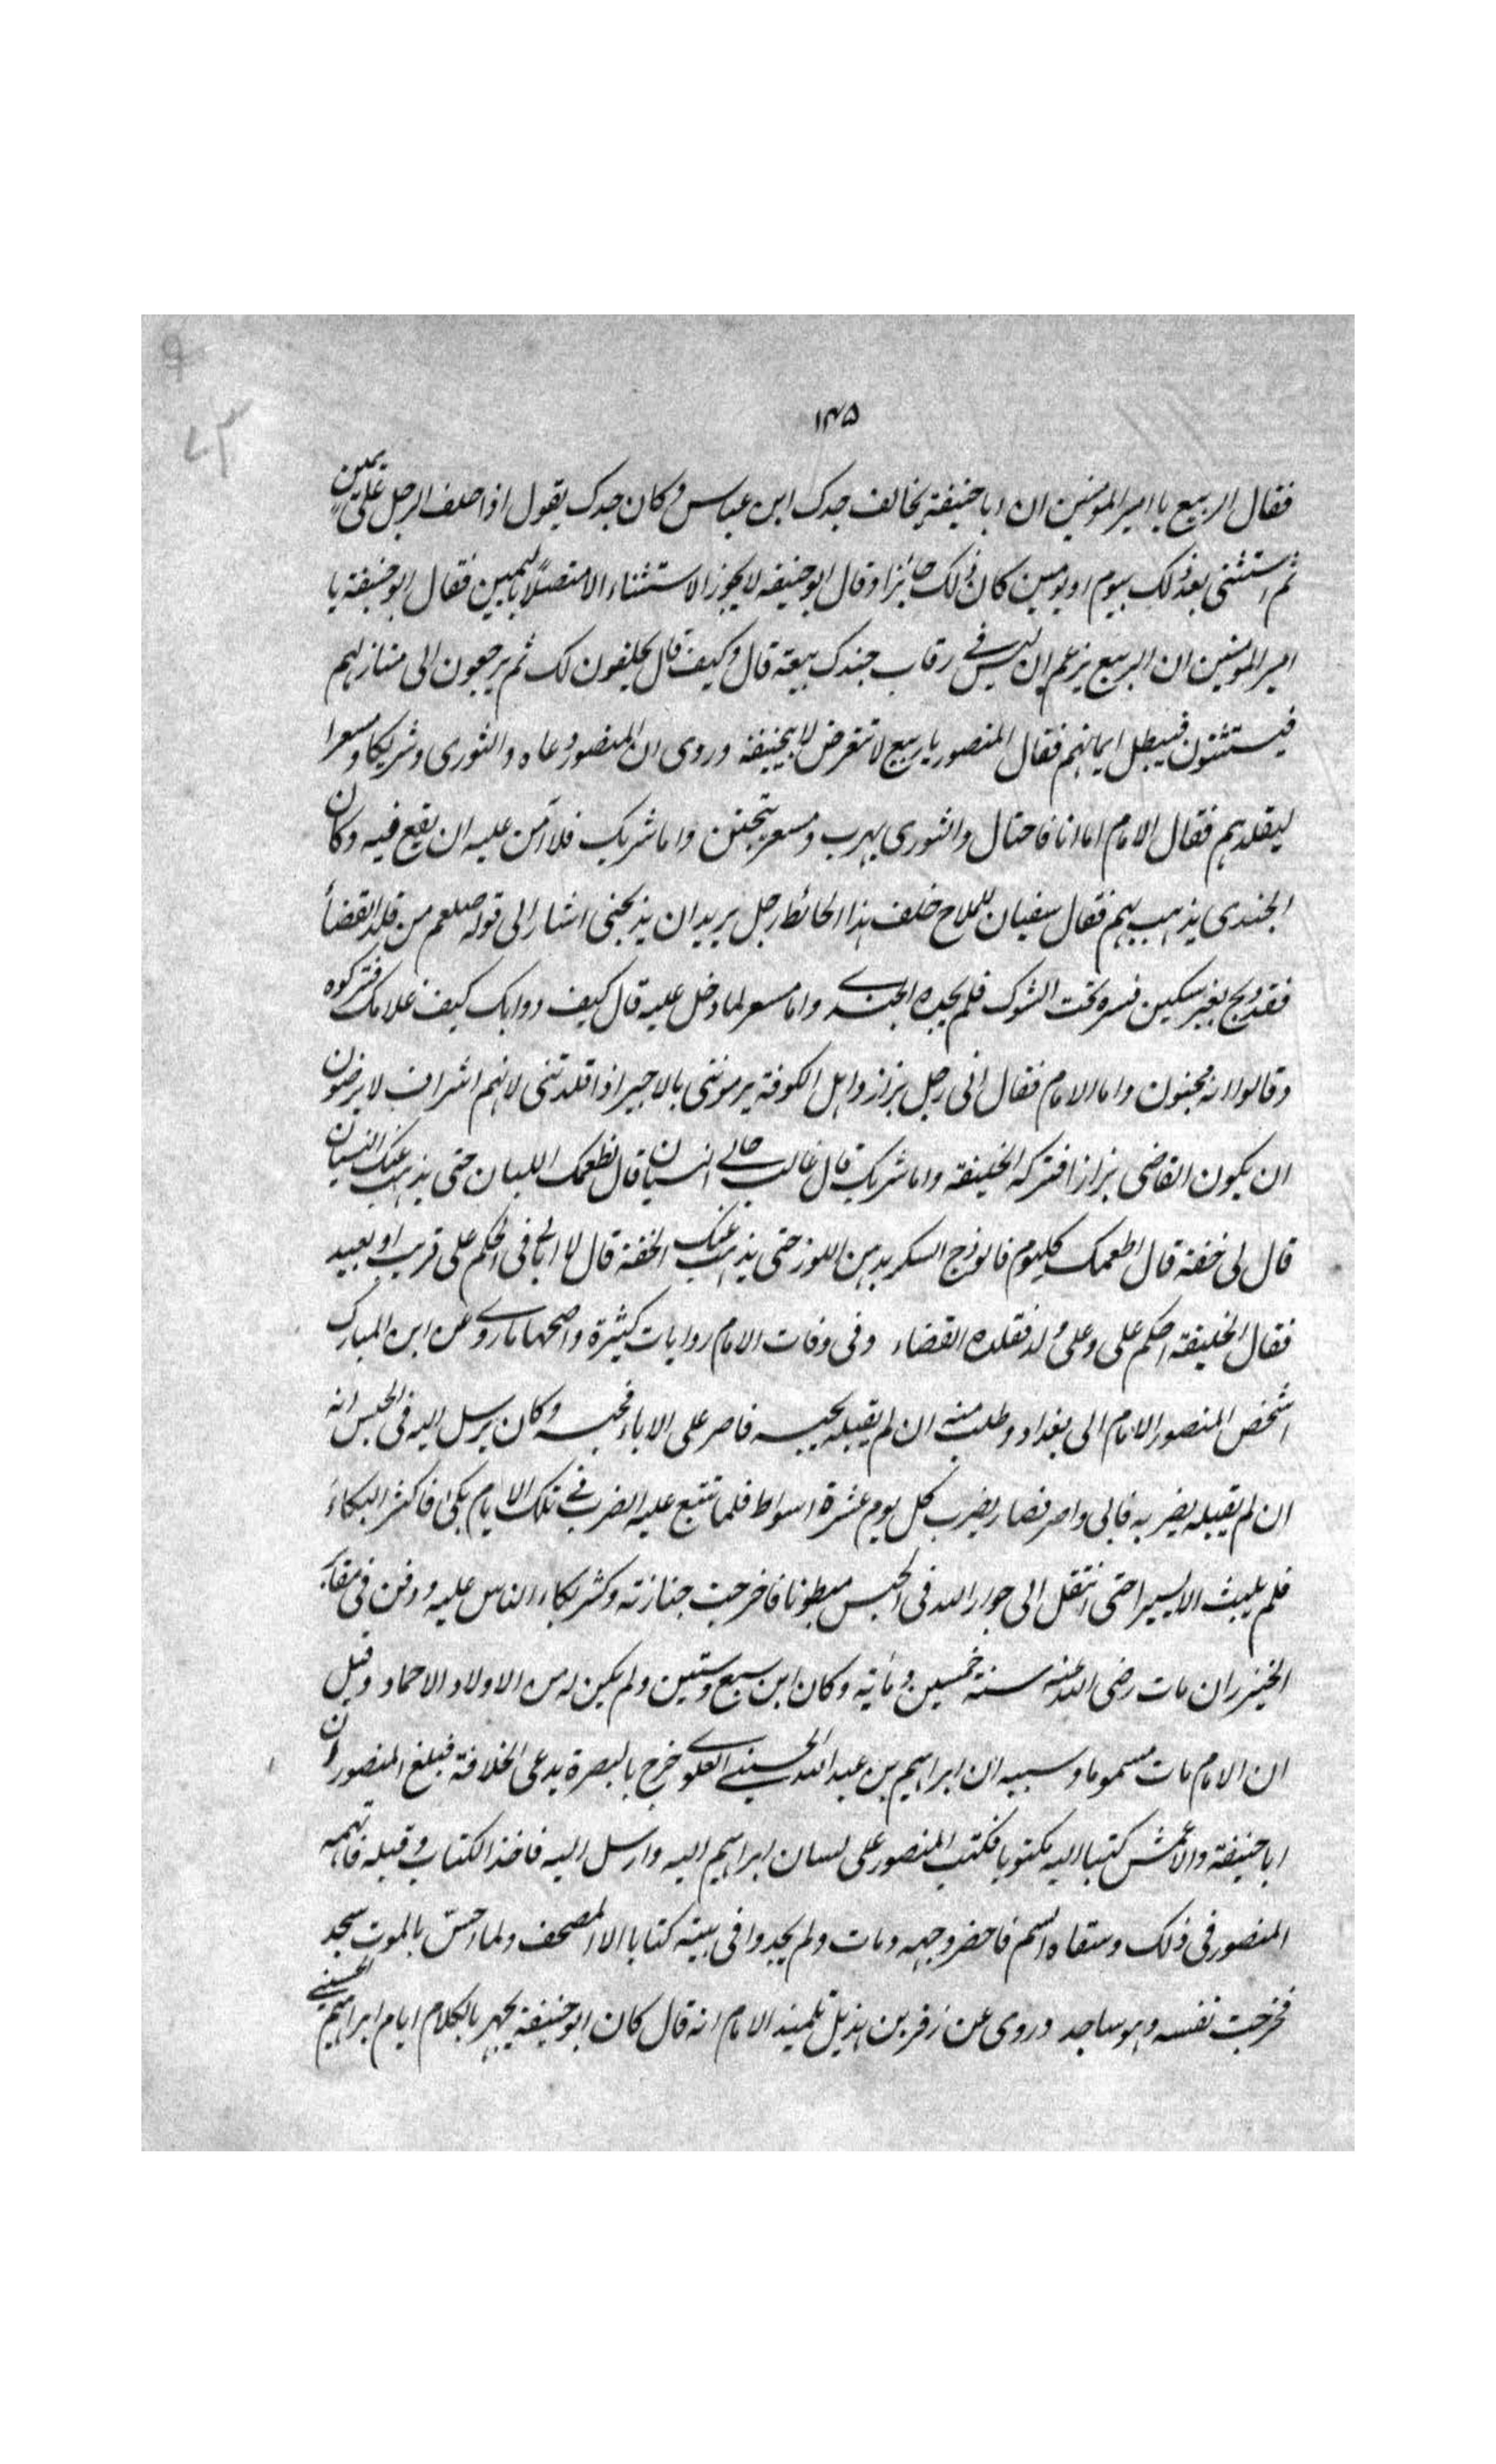 ۱۴۵
فقال الربيع يا امير المومنين ان ابا حنيفة يخالف جدك ابن عباس وكان جدك يقول اذا حلف الرجل على يمين
ثم استثنى بعد ذلك بيوم او يومين كان ذلك جائزا وقال ابو حنيفه لا يجوز الاستثناء الا متصلا باليمين فقال ابو حنيفة يا
امير المومنين ان الربيع يزعم ان ليس في رقاب جندك بيعة قال وكيف قال يحلفون لك ثم يرجعون الى منازلهم
فيستثنون فيبطل ايمانهم فقال المنصور يا ربيع لا تتعرض لابيحنيفة وروى ان المنصور دعاه والثورى وشريكا ومسعرا
ليقلدهم فقال الامام اما انا فاحتال والثورى يهرب ومسعر يتجنن واما شريك فلا آمن عليه ان يقع فيه وكان
الجندى يذهب بهم فقال سفيان للملاح خلف هذا الحائط رجل يريد ان يذبحنى اشار الى قوله صلعم من قلد القضأ
فقد ذبح بغير سكين فستره تحت الشوك فلم يجده الجندي واما مسعر لما دخل عليه قال كيف دوابك كيف غلامك فتركوه
وقالوا انه مجنون واما الامام فقال انى رجل بزاز واهل الكوفة يرموننى بالاجير اذا قلدتنى لانهم اشراف لا يرضون
ان يكون القاضى بزازا فتركه الخليفة واما شريك قال غالب حالي النسيان قال نطعمك اللبان حتى يذهب عنك النسيان
قال لى خفة قال اطعمك كليوم فالوذج السكر بدهن اللوز حتى يذهب عنك الخفة قال لا ابالى في الحكم على قريب او بعيد
فقال الخليفة احكم على وعلى ولد فقلده القضاء وفى وفات الامام روايات كثيرة واصحها ما روي عن ابن المبارك
اشخص المنصور الامام الى بغداد وطلب منه ان لم يقبله يحبسه فاصر على الاباء فحبسه وكان يرسل اليه فى الحبس انه
ان لم يقبله يضربه فابى واصر فصار يضرب كل يوم عشرة اسواط فلما تتبع عليه الضرب في تلك الايام بكى فاكثر البكاء
فلم يلبث الا يسيرا حتى انتقل الى جوار الله فى الحبس مبطونا فاخرجت جنازته وكثر بكاء الناس عليه ودفن فى مقابر
الخيزران مات رضى الله عنه سنة خمسين ومائة وكان ابن سبع وستين ولم يكن له من الاولاد الا حماد وقيل
ان الامام مات مسموما وسببه ان ابراهيم بن عبد الله الحسيني العلوي خرج بالبصرة يدعى الخلافة فبلغ المنصور ان
ابا حنيفة والاعمش كتبا اليه مكتوبا فكتب المنصور على لسان ابراهيم اليه وارسل اليه فاخذ الكتاب وقبله فاتهمه
المنصور فى ذلك وسقاه السم فاخضر وجهه ومات ولم يجدوا فى بيته كتابا الا المصحف ولما احس بالموت سجد
فخرجت نفسه وهو ساجد وروى عن زفر بن هذيل تلميذ الامام انه قال كان ابو حنيفة يجهر بالكلام ايام ابراهيم الحسيني